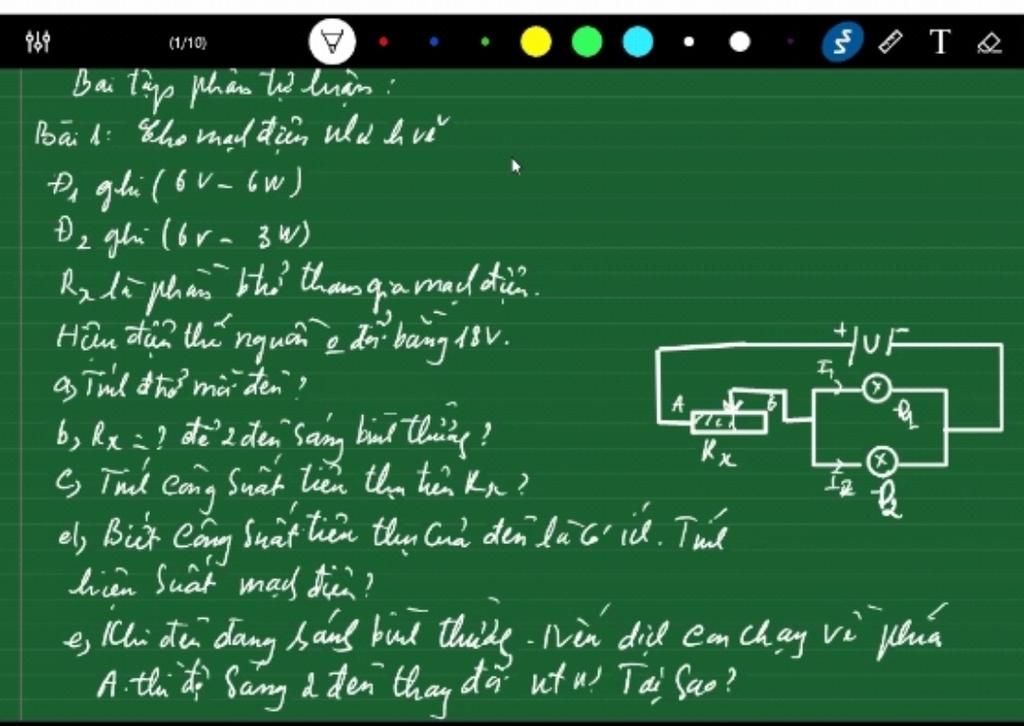 (1/10)
T
Bài tập phần tự luận:
Bài 1: Cho mạch điện như h vẽ
Đ1 ghi (6V - 6W)
Đ2 ghi (6V - 3W)
Rx là phần btrở tham gia mạch điện.
Hiệu điện thế nguồn o đổi bằng 18V.
a, Tính đtrở mỗi đèn?
b, Rx = ? để 2 đèn sáng bình thường?
c, Tính công suất tiêu thụ trên Rx?
d, Biết công suất tiêu thụ của đèn là có ích. Tính
hiệu suất mạch điện?
e, Khi đèn đang sáng bình thường. Nếu dịch con chạy về phía
A thì độ sáng 2 đèn thay đổi ntn? Tại sao?
+ U -
I1
Đ1
A B
Rx
I2
Đ2